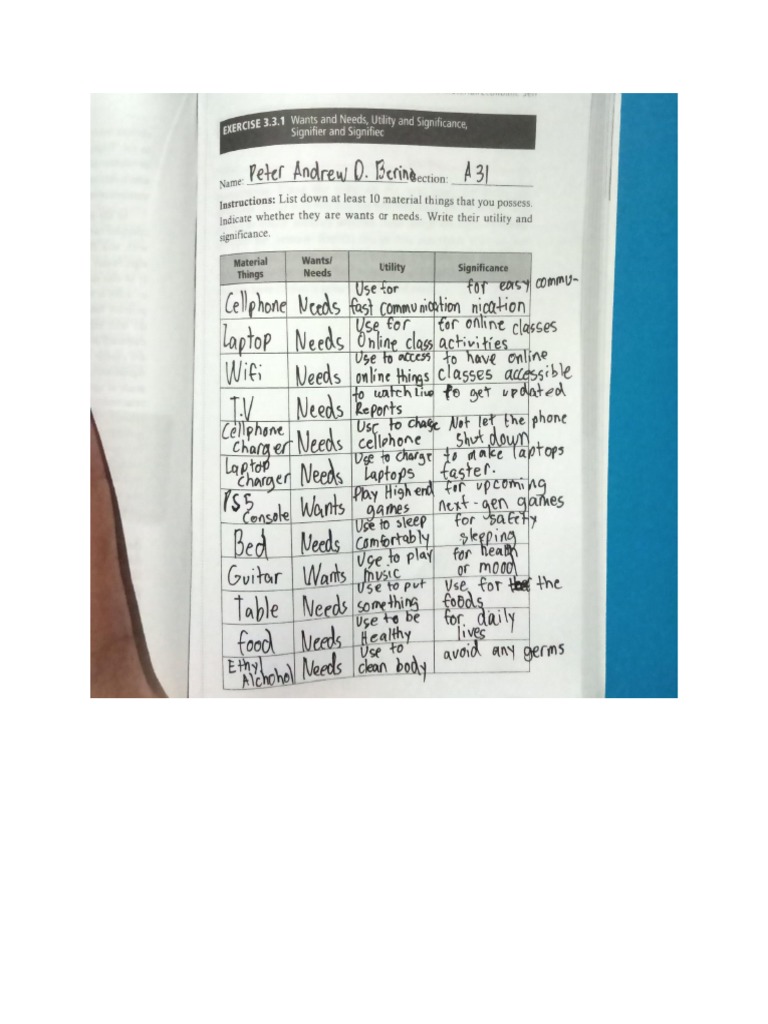 EXERCISE 3.3.1 Wants and Needs, Utility and Significance,
Signifier and Signifiec
Name: Peter Andrew D. Berina ection: A31
Instructions: List down at least 10 material things that you possess.
Indicate whether they are wants or needs. Write their utility and
significance.
Material Things Wants/ Needs Utility Significance
Cellphone Needs Use for fast communication for easy commu- nication
Laptop Needs Use for Online class for online classes activities
Wifi Needs Use to access online things to have online classes accessible
T.V Needs to watch live Reports to get updated
Cellphone charger Needs Use to charge cellphone Not let the phone shut down
Laptop charger Needs Use to charge Laptops to make laptops faster.
PS5 Console Wants Play High end games for upcoming next-gen games
Bed Needs Use to sleep comfortably for safety sleeping
Guitar Wants Use to play music for health or mood
Table Needs Use to put something Use for the foods
food Needs Use to be Healthy for daily lives
Ethyl Alchohol Needs Use to clean body avoid any germs